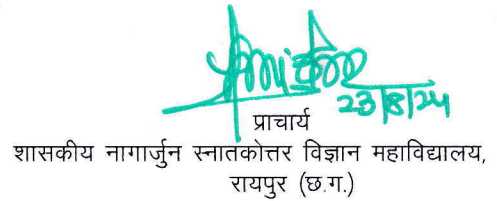 23/8/24
प्राचार्य
शासकीय नागार्जुन स्नातकोत्तर विज्ञान महाविद्यालय,
रायपुर (छ.ग.)